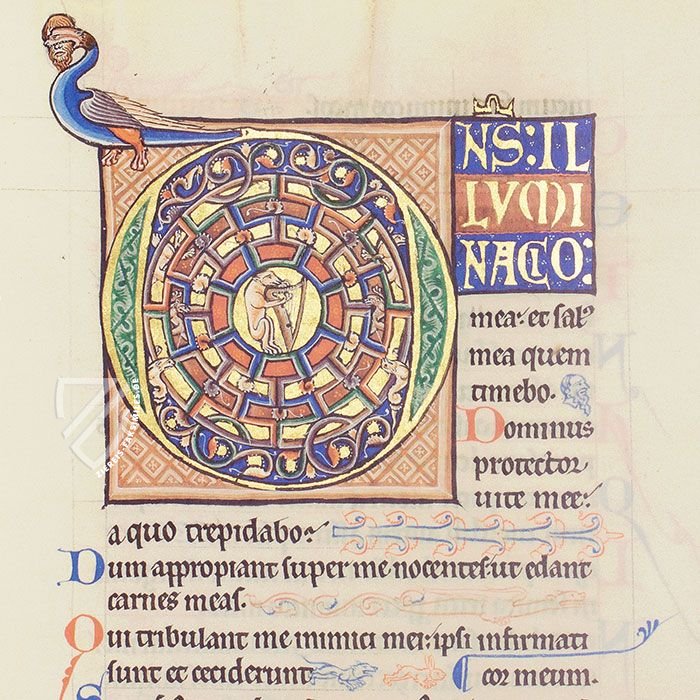 DNS: IL
LUMI
NACIO:
mea: et sal'
mea quem
timebo.
Dominus
protector
uite mee:
a quo trepidabo:
Dum appropiant super me nocentes: ut edant
carnes meas.
Qui tribulant me inimici mei: ipsi infirmati
sunt et ceciderunt. cor meum.
ZIEREIS FAKSIMILES.DE